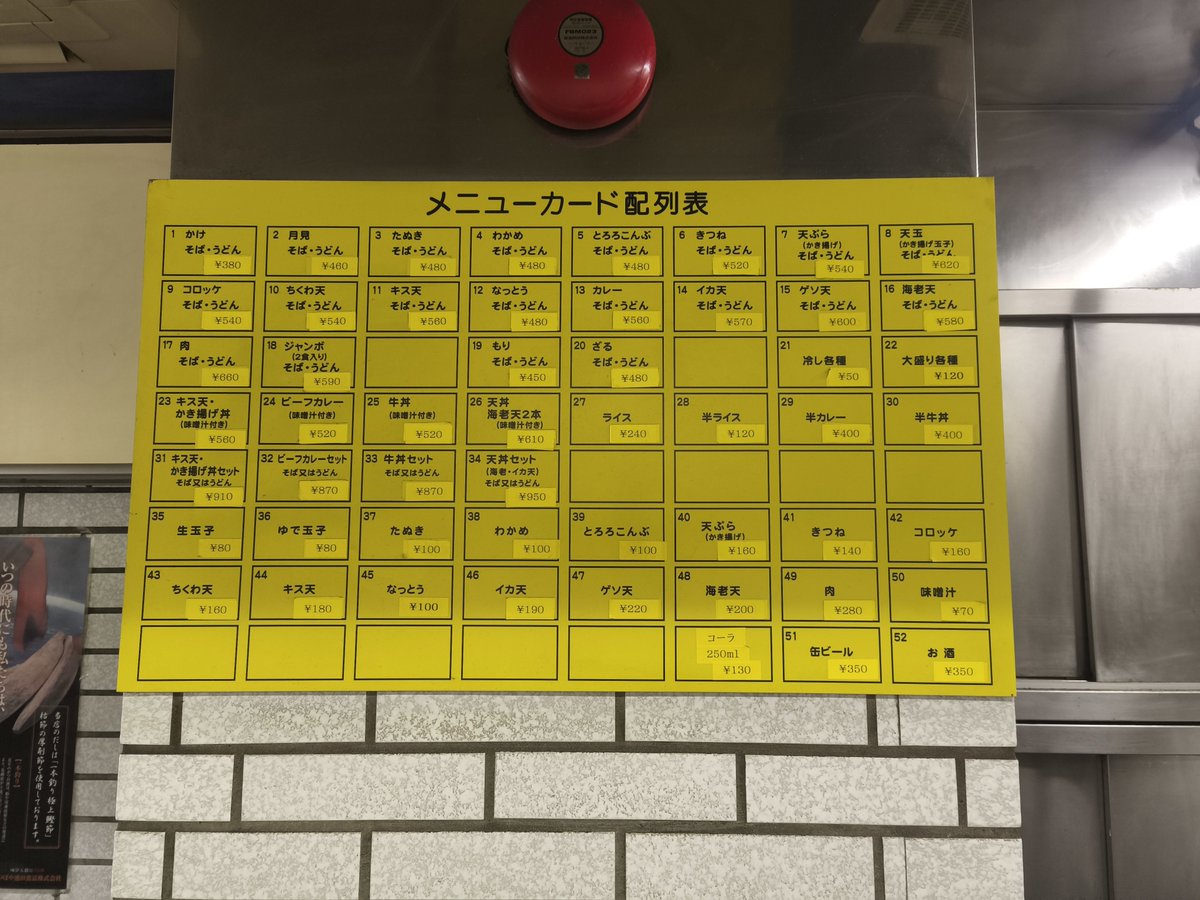 FBM023
メニューカード配列表
1 かけ
そば・うどん
¥380
2 月見
そば・うどん
¥460
3 たぬき
そば・うどん
¥480
4 わかめ
そば・うどん
¥480
5 とろろこんぶ
そば・うどん
¥480
6 きつね
そば・うどん
¥520
7 天ぷら
(かき揚げ)
そば・うどん
¥540
8 天玉
(かき揚げ玉子)
そば・うどん
¥620
9 コロッケ
そば・うどん
¥540
10 ちくわ天
そば・うどん
¥540
11 キス天
そば・うどん
¥560
12 なっとう
そば・うどん
¥480
13 カレー
そば・うどん
¥560
14 イカ天
そば・うどん
¥570
15 ゲソ天
そば・うどん
¥600
16 海老天
そば・うどん
¥580
17 肉
そば・うどん
¥660
18 ジャンボ
(2食入り)
そば・うどん
¥590
19 もり
そば・うどん
¥450
20 ざる
そば・うどん
¥480
21
冷し各種
¥50
22
大盛り各種
¥120
23 キス天・
かき揚げ丼
(味噌汁付き)
¥560
24 ビーフカレー
(味噌汁付き)
¥520
25 牛丼
(味噌汁付き)
¥520
26 天丼
海老天2本
(味噌汁付き)
¥610
27
ライス
¥240
28
半ライス
¥120
29
半カレー
¥400
30
半牛丼
¥400
31 キス天・
かき揚げ丼セット
そば又はうどん
¥910
32 ビーフカレーセット
そば又はうどん
¥870
33 牛丼セット
そば又はうどん
¥870
34 天丼セット
(海老・イカ天)
そば又はうどん
¥950
35
生玉子
¥80
36
ゆで玉子
¥80
37
たぬき
¥100
38
わかめ
¥100
39
とろろこんぶ
¥100
40
天ぷら
(かき揚げ)
¥160
41
きつね
¥140
42
コロッケ
¥160
43
ちくわ天
¥160
44
キス天
¥180
45
なっとう
¥100
46
イカ天
¥190
47
ゲソ天
¥220
48
海老天
¥200
49
肉
¥280
50
味噌汁
¥70
コーラ
250ml
¥130
51
缶ビール
¥350
52
お酒
¥350
いつの時代にも私たちは、
当店のだしは「一本釣り 極上 鰹節」
枯節の厚削節を使用しております。
【一本釣り】